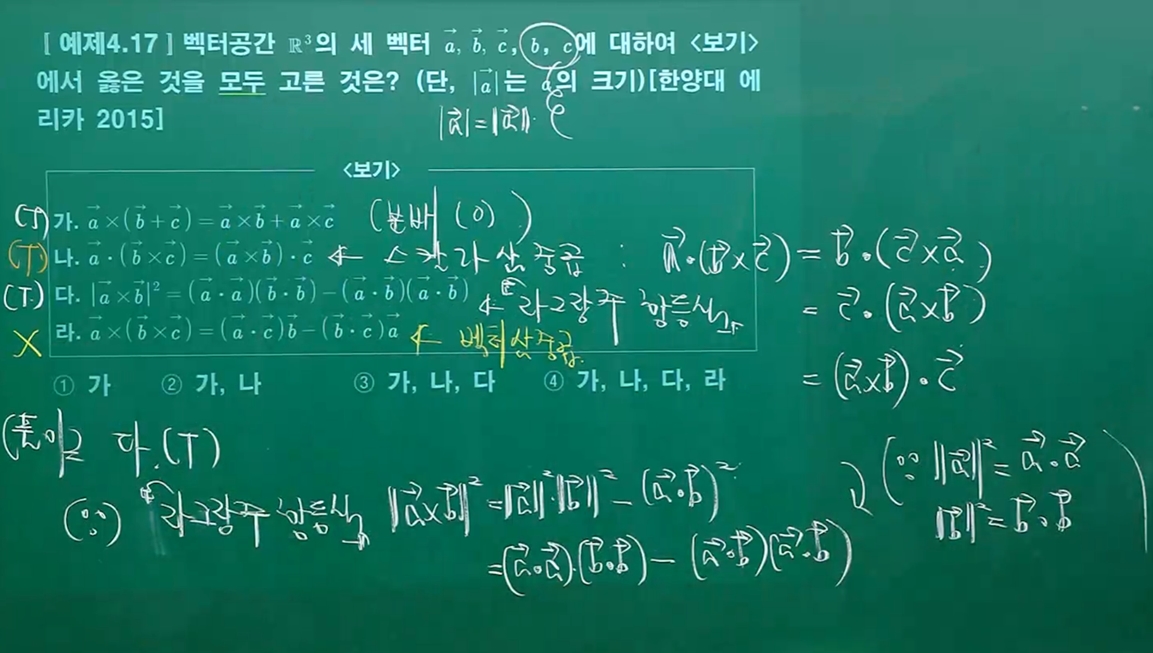 [ 예제4.17 ] 벡터공간 ℝ³의 세 벡터 a⃗, b⃗, c⃗, b, c에 대하여 <보기>
에서 옳은 것을 모두 고른 것은? (단, |a⃗|는 a의 크기)[한양대 에
리카 2015]
|a⃗|=‖a⃗‖.
<보기>
(T) 가. a⃗×(b⃗+c⃗)=a⃗×b⃗+a⃗×c⃗ (분배 (0) )
(T) 나. a⃗·(b⃗×c⃗)=(a⃗×b⃗)·c⃗ ← 스칼라 삼중곱 : a⃗·(b⃗×c⃗)=b⃗·(c⃗×a⃗)
(T.) 다. |a⃗×b⃗|²=(a⃗·a⃗)(b⃗·b⃗)-(a⃗·b⃗)(a⃗·b⃗) ← 라그랑주 항등식
= c⃗·(a⃗×b⃗)
X 라. a⃗×(b⃗×c⃗)=(a⃗·c⃗)b⃗-(b⃗·c⃗)a⃗ ← 벡터삼중곱.
= (a⃗×b⃗)·c⃗
① 가 ② 가, 나 ③ 가, 나, 다 ④ 가, 나, 다, 라
(풀이) 다.(T)
(∵) 라그랑주 항등식 ‖a⃗×b⃗‖²=‖a⃗‖²·‖b⃗‖²-(a⃗·b⃗)²
(∵ ‖a⃗‖²=a⃗·a⃗
‖b⃗‖²=b⃗·b⃗ )
=(a⃗·a⃗)·(b⃗·b⃗)-(a⃗·b⃗)(a⃗·b⃗)